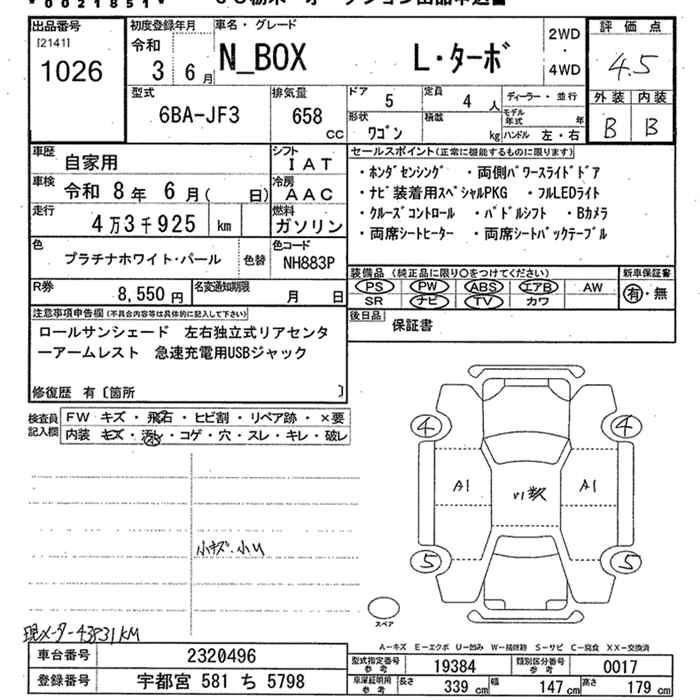 *0021851*
出品番号 初度登録年月 車名・グレード 評価点
[2141]
1026
令和
3 6月
N_BOX L・ターボ
2WD
・
4WD
4.5
外装 内装
B B
型式
6BA-JF3
排気量
658 CC
ドア 5 定員 4 人 ディーラー・並行
形状 ワゴン 積載 kg
モデル年式 年
ハンドル 左・右
車歴 自家用
車検 令和 8年 6月( 日)
走行 4万3千925 km
色 プラチナホワイト・パール 色替
シフト IAT
冷房 AAC
燃料 ガソリン
色コード NH883P
セールスポイント(正常に機能するものに限ります)
・ホンダセンシング ・両側パワースライドドア
・ナビ装着用スペシャルPKG ・フルLEDライト
・クルーズコントロール ・パドルシフト ・Bカメラ
・両席シートヒーター ・両席シートバックテーブル
R券 8,550円 名変通知期限 月 日
装備品 (純正品に限り○をつけてください) 新車保証書
PS PW ABS エアB AW
SR ナビ TV カワ
有・無
後日品 保証書
注意事項申告欄(不具合内容等は具体的に記入して下さい)
ロールサンシェード 左右独立式リアセンタ
ーアームレスト 急速充電用USBジャック
修復歴 有〔箇所 〕
検査員記入欄
FW キズ・飛石・ヒビ割・リペア跡・×要
内装 キズ・汚レ・コゲ・穴・スレ・キレ・破レ
4 4
A1 A1
5 5
小キズ・小U
スペア
現メーター43931KM
A-キズ E-エクボ U-凹み W-補修跡 S-サビ C-腐食 XX-交換済
車台番号 2320496
登録番号 宇都宮 581 ち 5798
型式指定番号参考 19384 類別区分番号参考 0017
車庫証明用参考 長さ 339 cm 幅 147 cm 高さ 179 cm